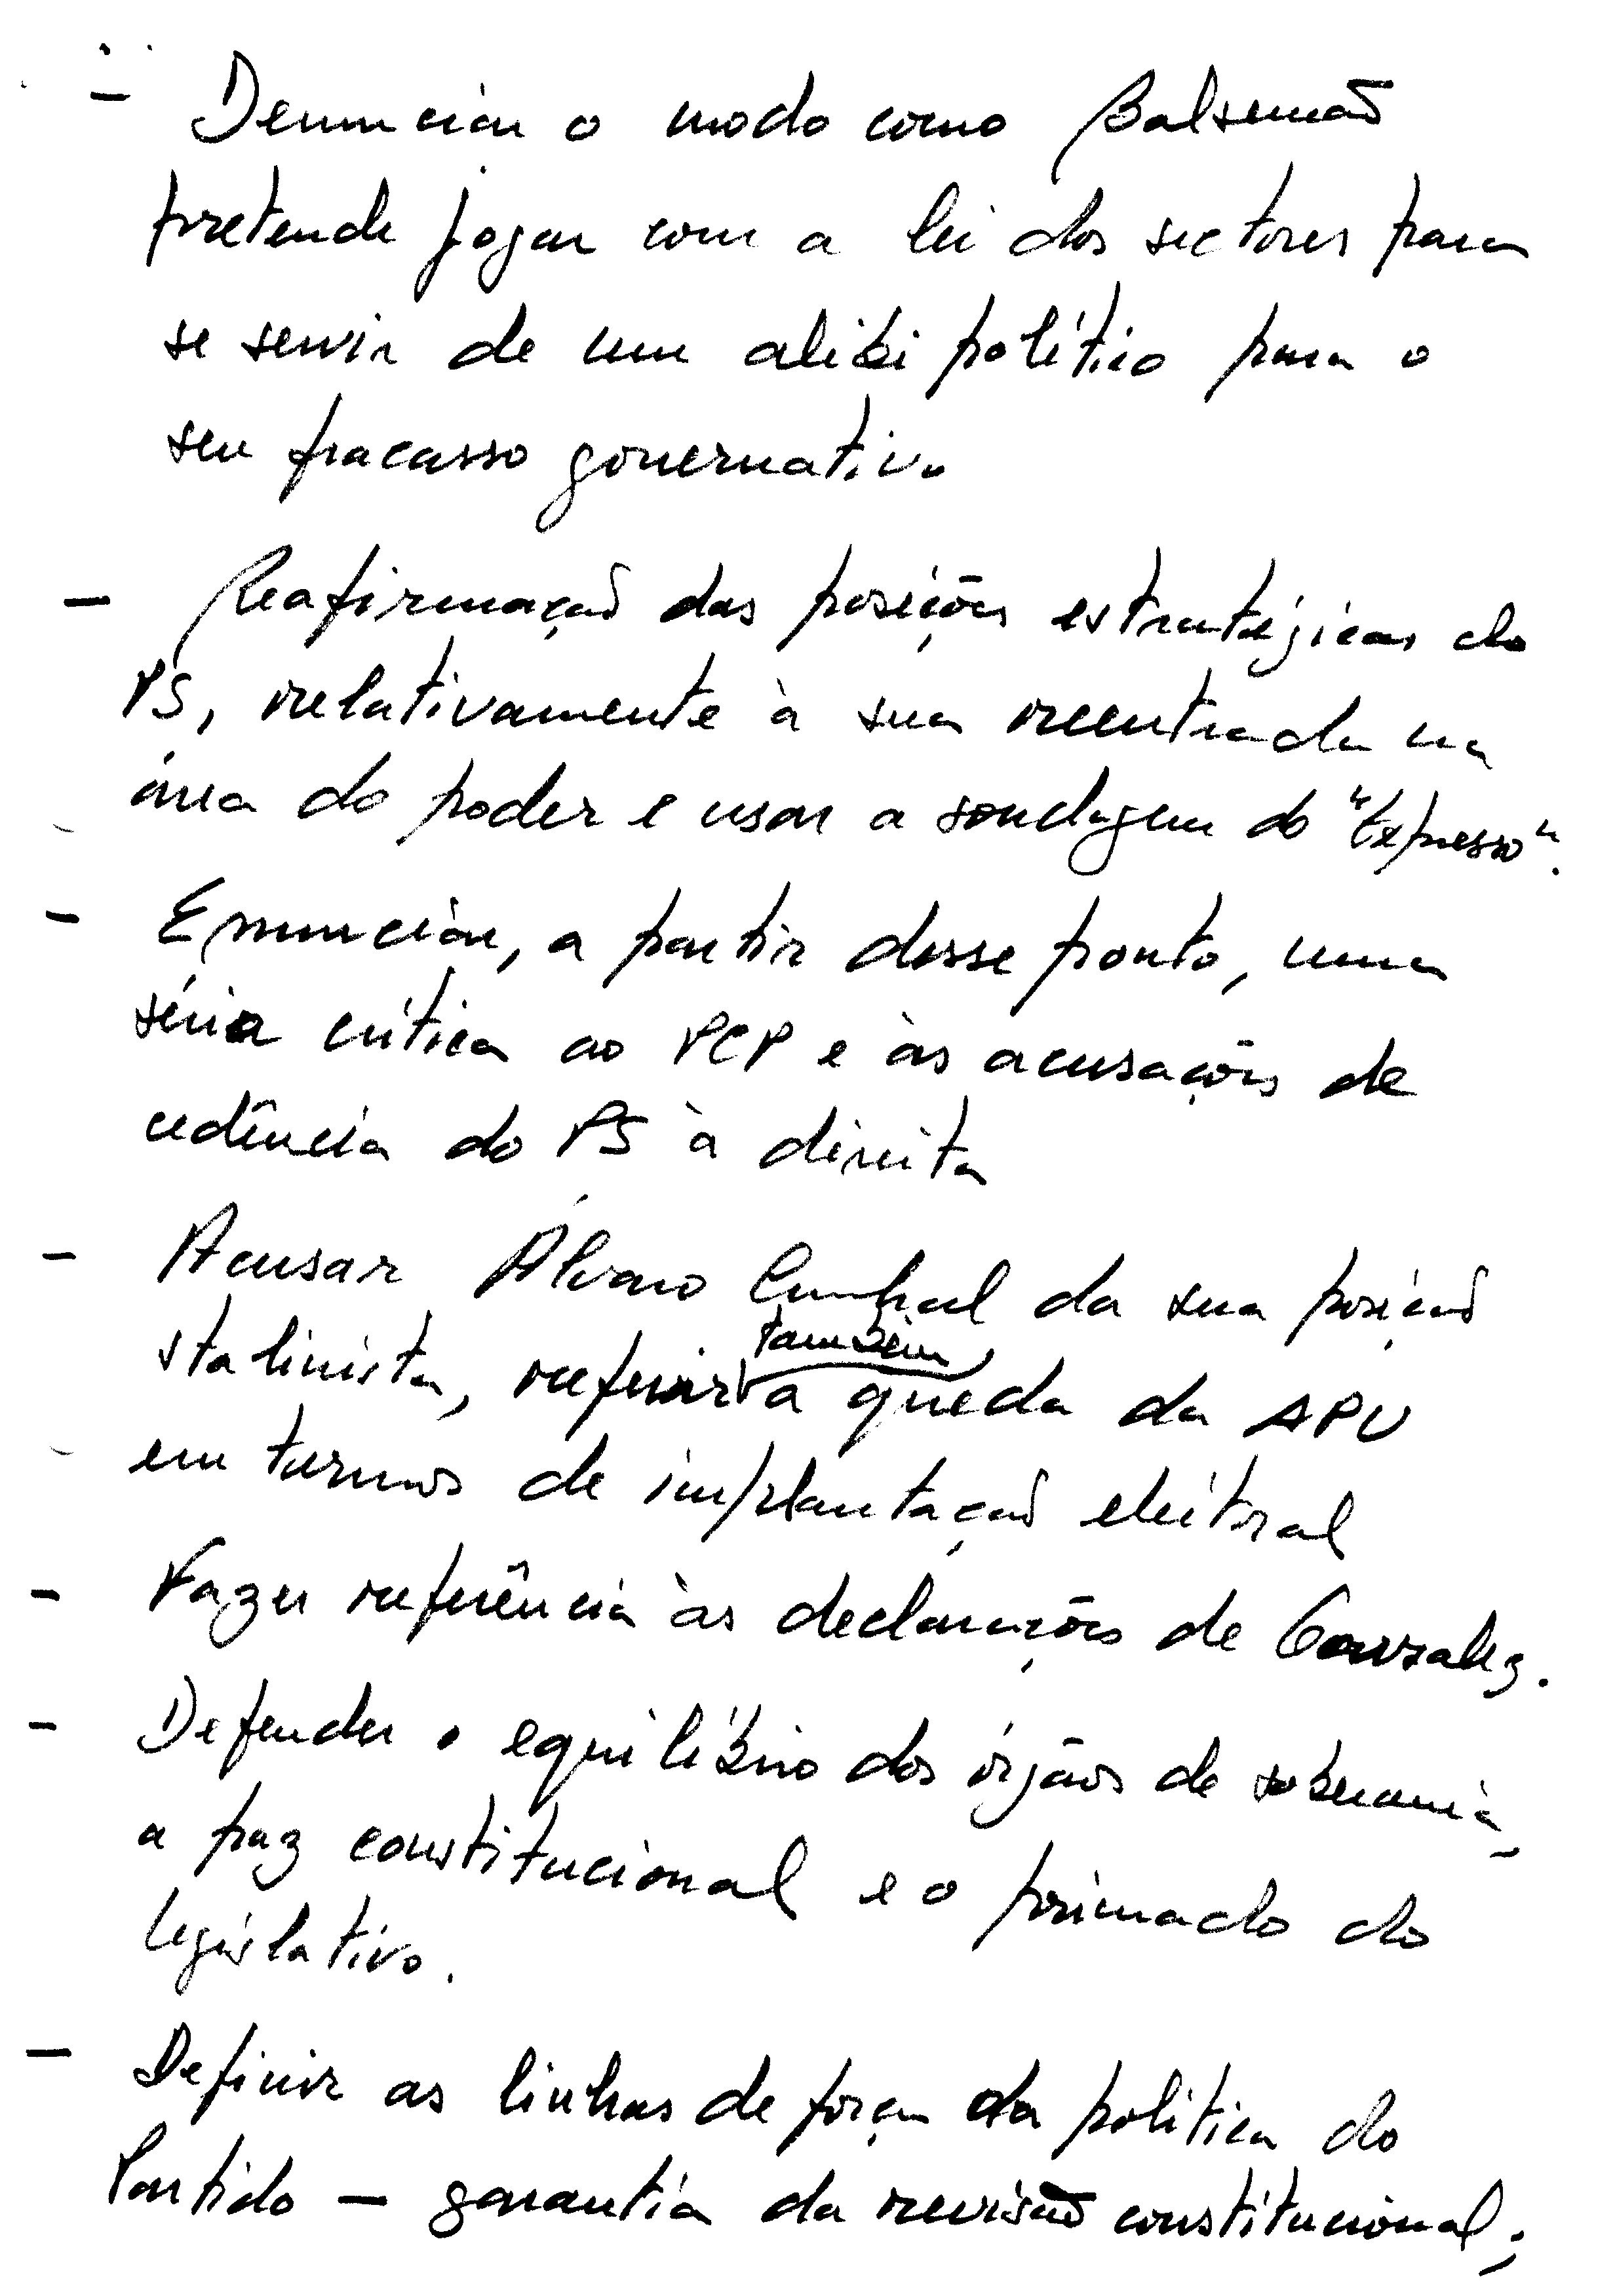 - Denunciar o modo como Balsemão
pretende jogar com a lei dos sectores para
se servir de um alibi político para o
seu fracasso governativo
- Reafirmação das posições estratégicas do
PS, relativamente à sua reentrada na
área do poder e usar a sondagem do "Expresso".
- Enunciar, a partir desse ponto, uma
séria crítica ao PCP e às acusações de
cedência do PS à direita
- Acusar Álvaro Cunhal da sua posição
também
stalinista, referir a queda da APU
em termos de implantação eleitoral
- Fazer referência às declarações de Gonzalez.
- Defender o equilíbrio dos órgãos de soberania,
a paz constitucional e o primado do
legislativo.
- Definir as linhas de força da política do
Partido — garantia da revisão constitucional;